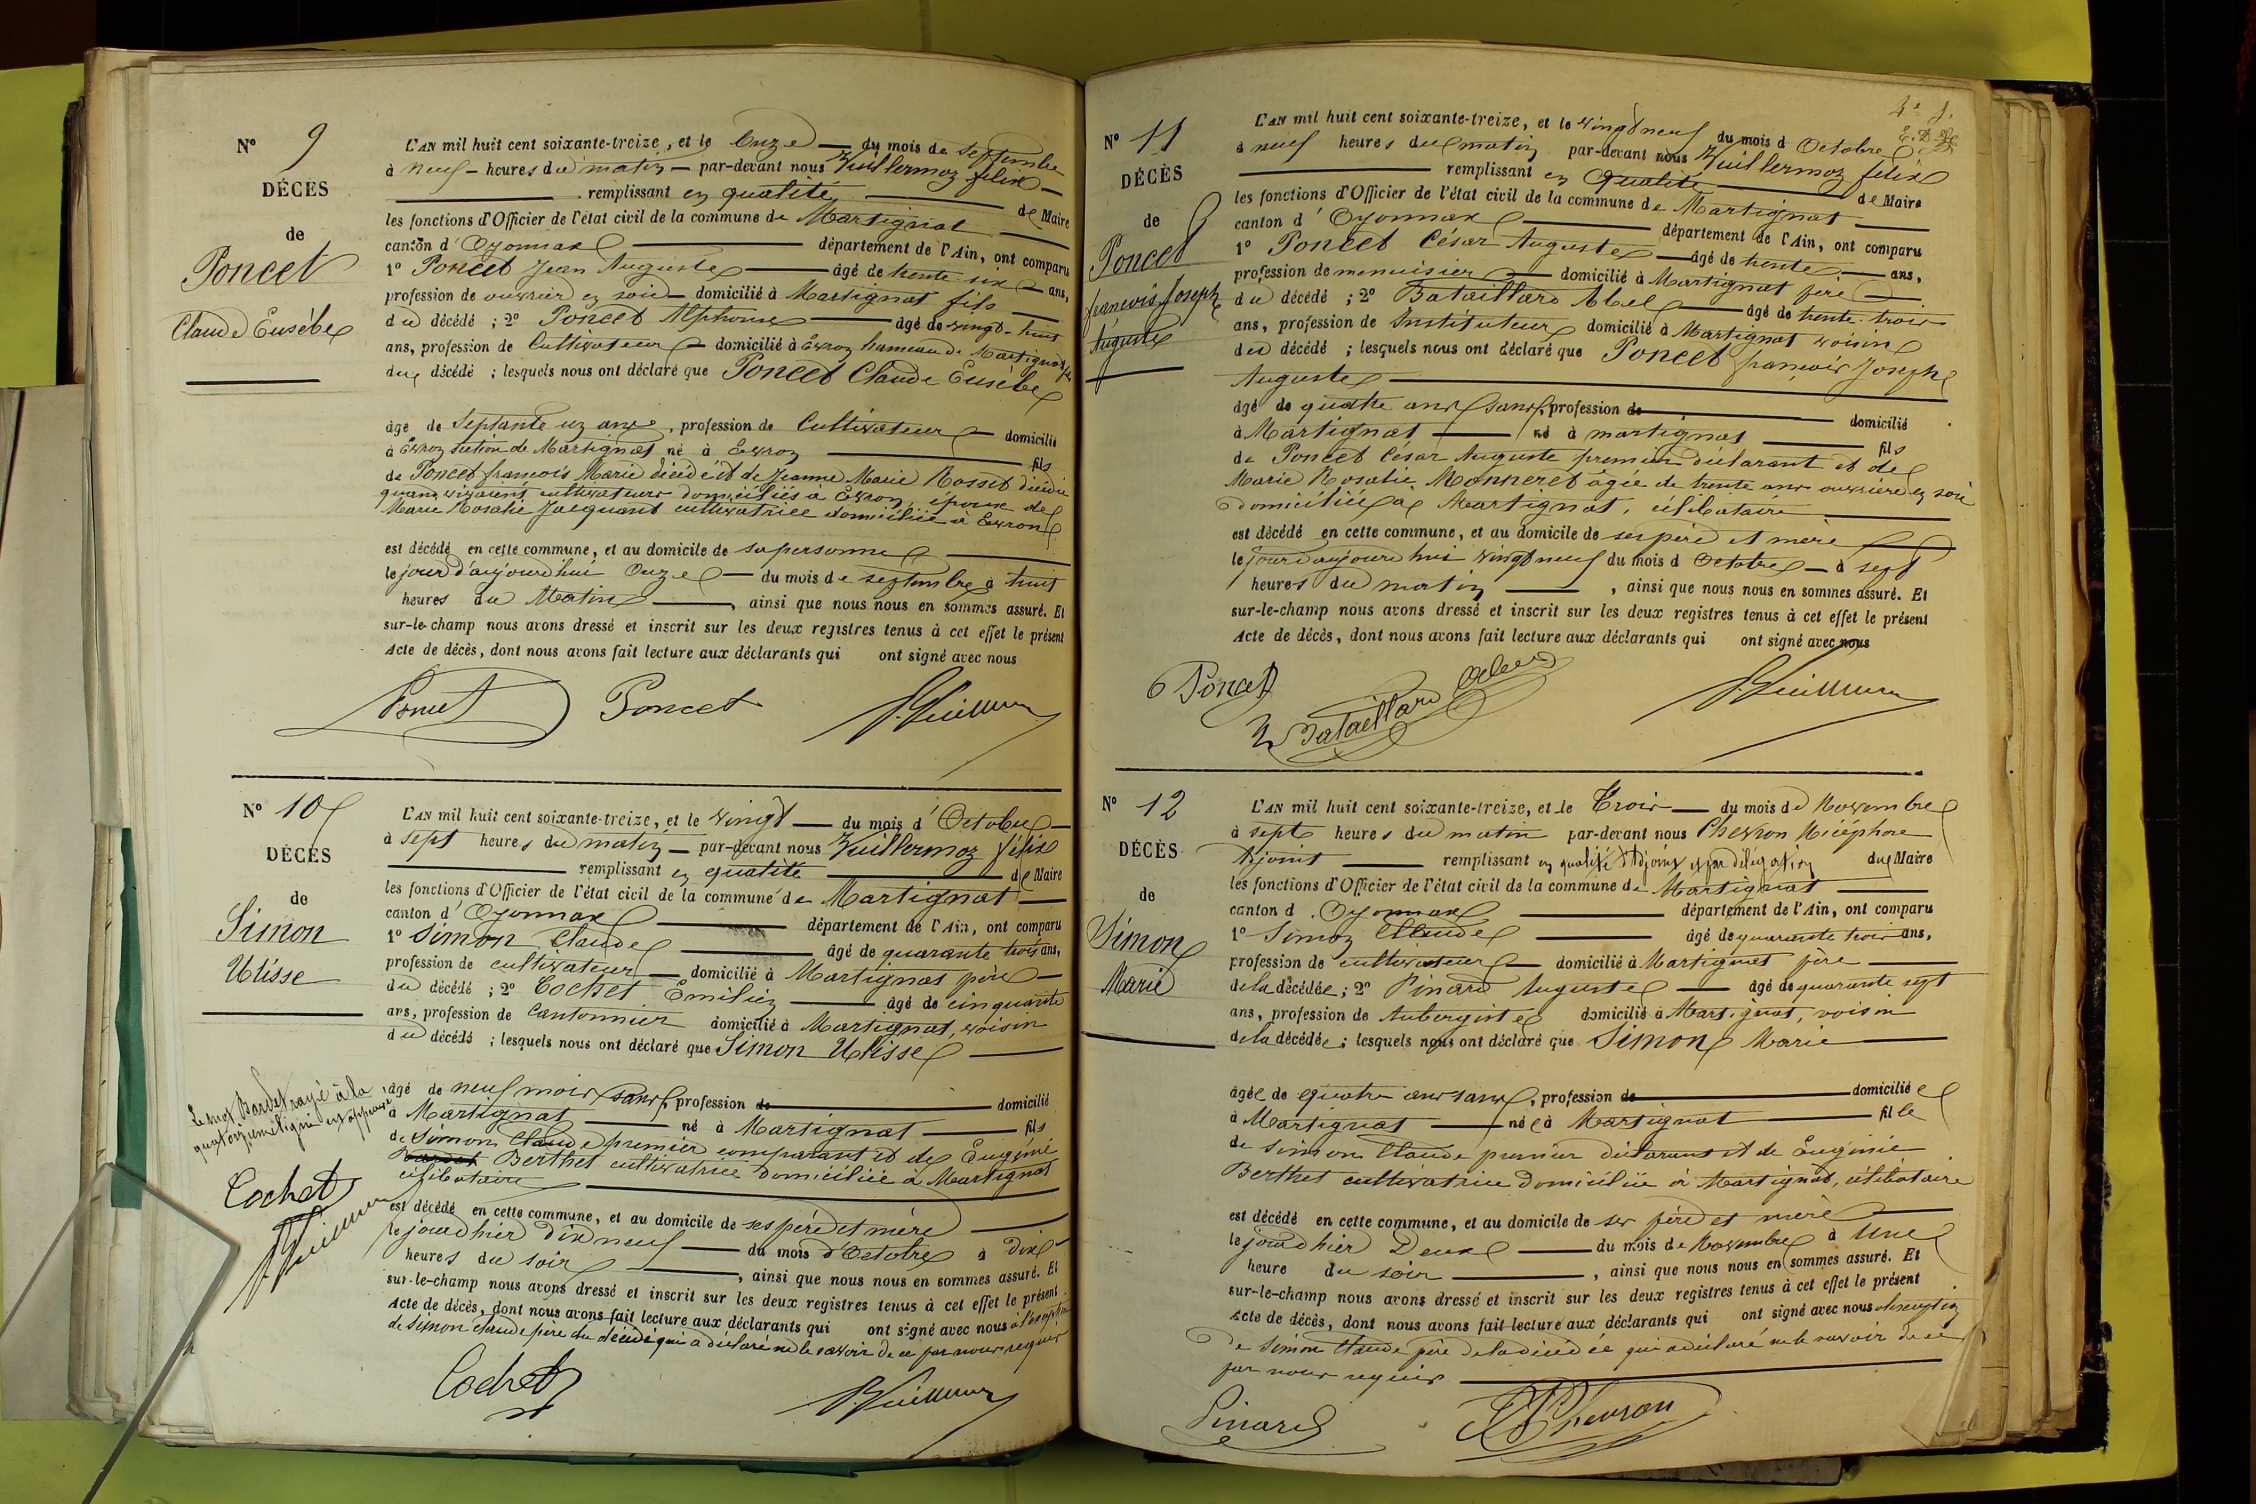 N° 9
DÉCÈS
de
Poncet
Claude Eusébe
L'AN mil huit cent soixante-treize, et le Onze du mois de Septembre
à neuf heures du matin par-devant nous Vuillermoz félix
remplissant en qualité de Maire
les fonctions d'Officier de l'état civil de la commune de Martignat
canton d'Oyonnax département de l'Ain, ont comparu
1° Poncet Jean Auguste âgé de trente six ans,
profession de ouvrier en soie domicilié à Martignat fils
du décédé ; 2° Poncet Alphonse âgé de vingt-huit
ans, profession de Cultivateur domicilié à Evron hameau de Martignat fils
du décédé ; lesquels nous ont déclaré que Poncet Claude Eusébe
âgé de Septante un ans, profession de Cultivateur domicilié
à Evron section de Martignat né à Evron fils
de Poncet françois Marie décédé et de Jeanne Marie Rosset décédée
quand vivaient cultivateurs domiciliés à Evron, époux de
Marie Rosalie Jacquand cultivatrice domiciliée à Evron
est décédé en cette commune, et au domicile de sa personne
le jour d'aujourd'hui Onze du mois de septembre à huit
heures du Matin, ainsi que nous nous en sommes assuré. Et
sur-le-champ nous avons dressé et inscrit sur les deux registres tenus à cet effet le présent
Acte de décès, dont nous avons fait lecture aux déclarants qui ont signé avec nous
Poncet Poncet F. Vuillermoz
N° 10
DÉCÈS
de
Simon
Ulisse
L'AN mil huit cent soixante-treize, et le vingt du mois d'Octobre
à sept heures du matin par-devant nous Vuillermoz félix
remplissant en qualité de Maire
les fonctions d'Officier de l'état civil de la commune de Martignat
canton d'Oyonnax département de l'Ain, ont comparu
1° Simon Claude âgé de quarante trois ans,
profession de cultivateur domicilié à Martignat père
du décédé ; 2° Cochet Emilien âgé de cinquante
ans, profession de Cantonnier domicilié à Martignat, voisin
du décédé ; lesquels nous ont déclaré que Simon Ulisse
âgé de neuf mois sans, profession de domicilié
à Martignat né à Martignat fils
de Simon Claude premier comparant et de Eugénie
Bardet Berthet cultivatrice domiciliée à Martignat
célibataire
est décédé en cette commune, et au domicile de ses père et mère
le jour d'hier dix neuf du mois d'Octobre à Dix
heures du soir, ainsi que nous nous en sommes assuré. Et
sur-le-champ nous avons dressé et inscrit sur les deux registres tenus à cet effet le présent
Acte de décès, dont nous avons fait lecture aux déclarants qui ont signé avec nous à l'exception
de Simon claude père du décédé qui a déclaré ne le savoir de ce par nous requis
Le mot Bardet rayé à la
quatorzième ligne est approuvé
Cochet
F. Vuillermoz
Cochet F. Vuillermoz
N° 11
DÉCÈS
de
Poncet
francois Joseph
Auguste
L'AN mil huit cent soixante-treize, et le vingt neuf du mois d Octobre
à neuf heures du matin par-devant nous Vuillermoz félix
remplissant en qualité de Maire
les fonctions d'Officier de l'état civil de la commune de Martignat
canton d'Oyonnax département de l'Ain, ont comparu
1° Poncet César Auguste âgé de trente ans,
profession de menuisier domicilié à Martignat père
du décédé ; 2° Bataillard Abel âgé de trente trois
ans, profession de Instituteur domicilié à Martignat voisin
du décédé ; lesquels nous ont déclaré que Poncet françois Joseph
Auguste
âgé de quatre ans sans, profession de domicilié
à Martignat né à martignat fils
de Poncet César Auguste premier déclarant et de
Marie Rosalie Monneret âgée de trente ans ouvrière en soie
domiciliée a Martignat, célibataire
est décédé en cette commune, et au domicile de ses père et mère
le jour d'aujourd'hui vingt neuf du mois d Octobre à sept
heures du matin, ainsi que nous nous en sommes assuré. Et
sur-le-champ nous avons dressé et inscrit sur les deux registres tenus à cet effet le présent
Acte de décès, dont nous avons fait lecture aux déclarants qui ont signé avec nous
Poncet Bataillard F. Vuillermoz
N° 12
DÉCÈS
de
Simon
Marie
L'AN mil huit cent soixante-treize, et le Trois du mois de Novembre
à sept heures du matin par-devant nous Chevron Nicéphore
Adjoint remplissant en qualité d'adjoint et par délégation du Maire
les fonctions d'Officier de l'état civil de la commune de Martignat
canton d. Oyonnax département de l'Ain, ont comparu
1° Simon Claude âgé de quarante trois ans,
profession de cultivateur domicilié à Martignat père
de la décédée ; 2° Pinard Auguste âgé de quarante sept
ans, profession de Aubergiste domicilié à Martignat, voisin
de la décédée ; lesquels nous ont déclaré que Simon Marie
âgée de quatre ans sans, profession de domiciliée
à Martignat née à Martignat fille
de Simon Claude premier déclarant et de Eugénie
Berthet cultivatrice domiciliée à Martignat, célibataire
est décédé en cette commune, et au domicile de ses père et mère
le jour d'hier Deux du mois de Novembre à Une
heure du soir, ainsi que nous nous en sommes assuré. Et
sur-le-champ nous avons dressé et inscrit sur les deux registres tenus à cet effet le présent
Acte de décès, dont nous avons fait lecture aux déclarants qui ont signé avec nous à l'exception
de Simon Claude père de la décédée qui a déclaré ne le savoir de ce
par nous requis
Pinard Chevron